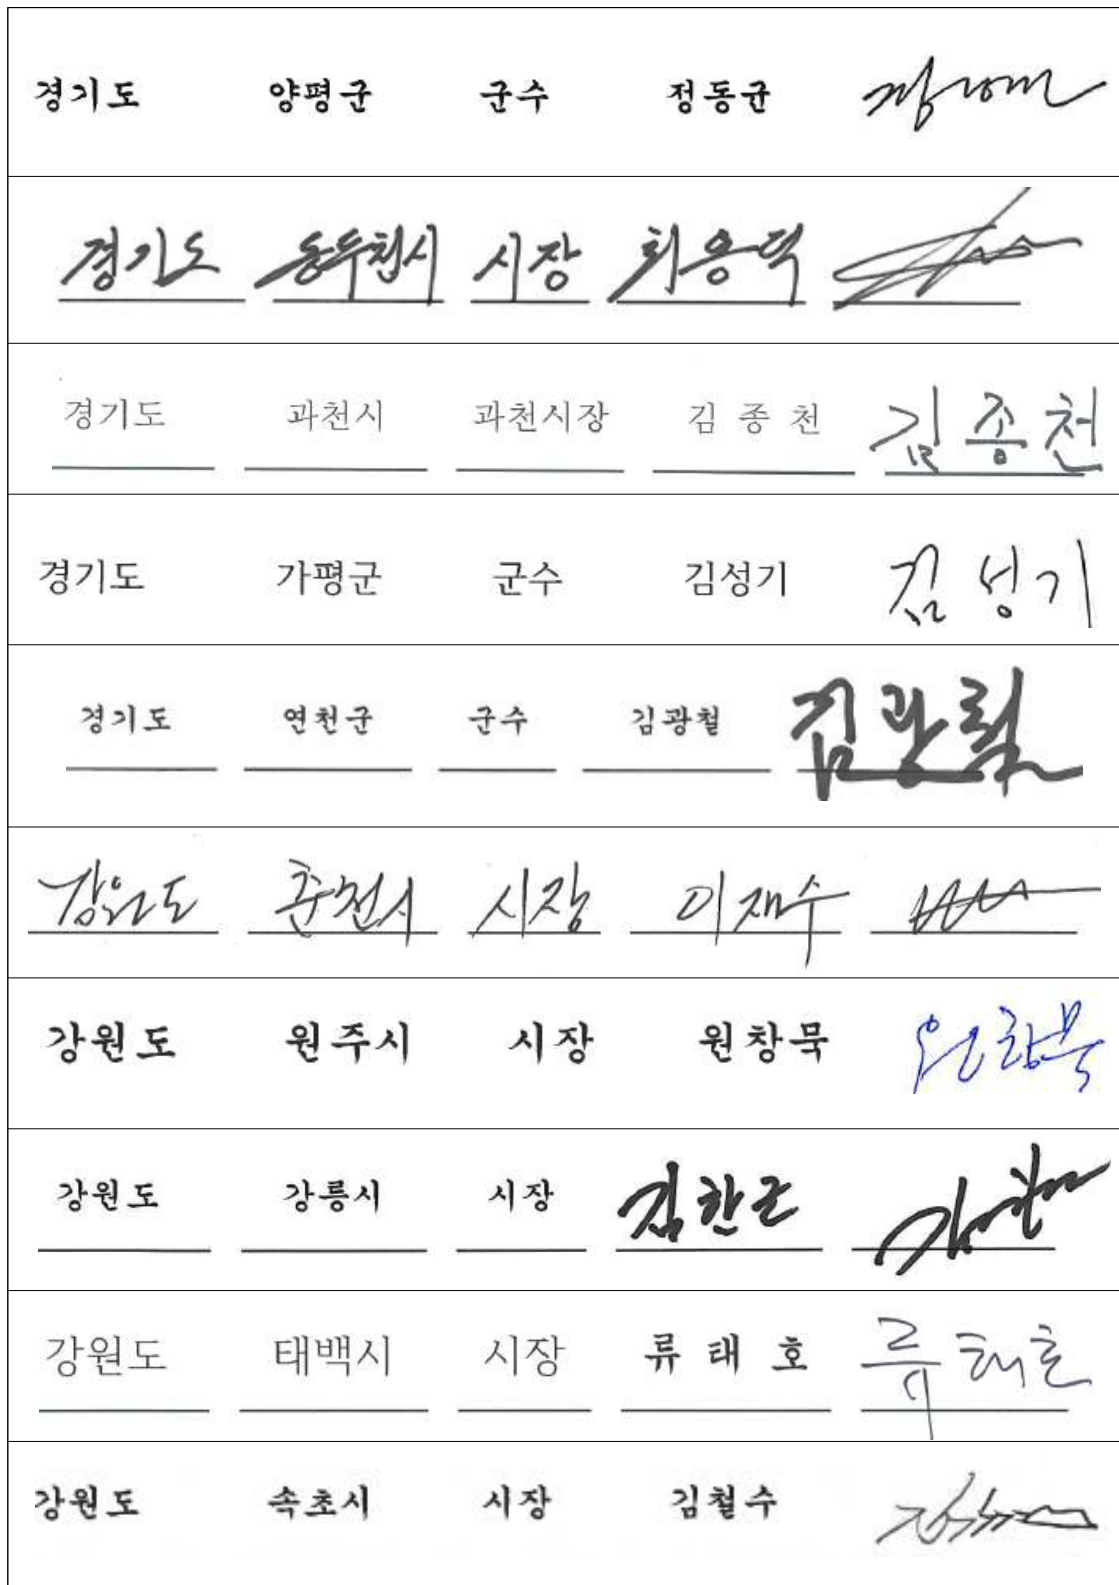 경기도 양평군 군수 정동균
경기도 동두천시 시장 최용덕
경기도 과천시 과천시장 김 종 천 김종천
경기도 가평군 군수 김성기 김성기
경기도 연천군 군수 김광철 김광철
강원도 춘천시 시장 이재수
강원도 원주시 시장 원창묵 원창묵
강원도 강릉시 시장 김한근
강원도 태백시 시장 류 태 호 류태호
강원도 속초시 시장 김철수